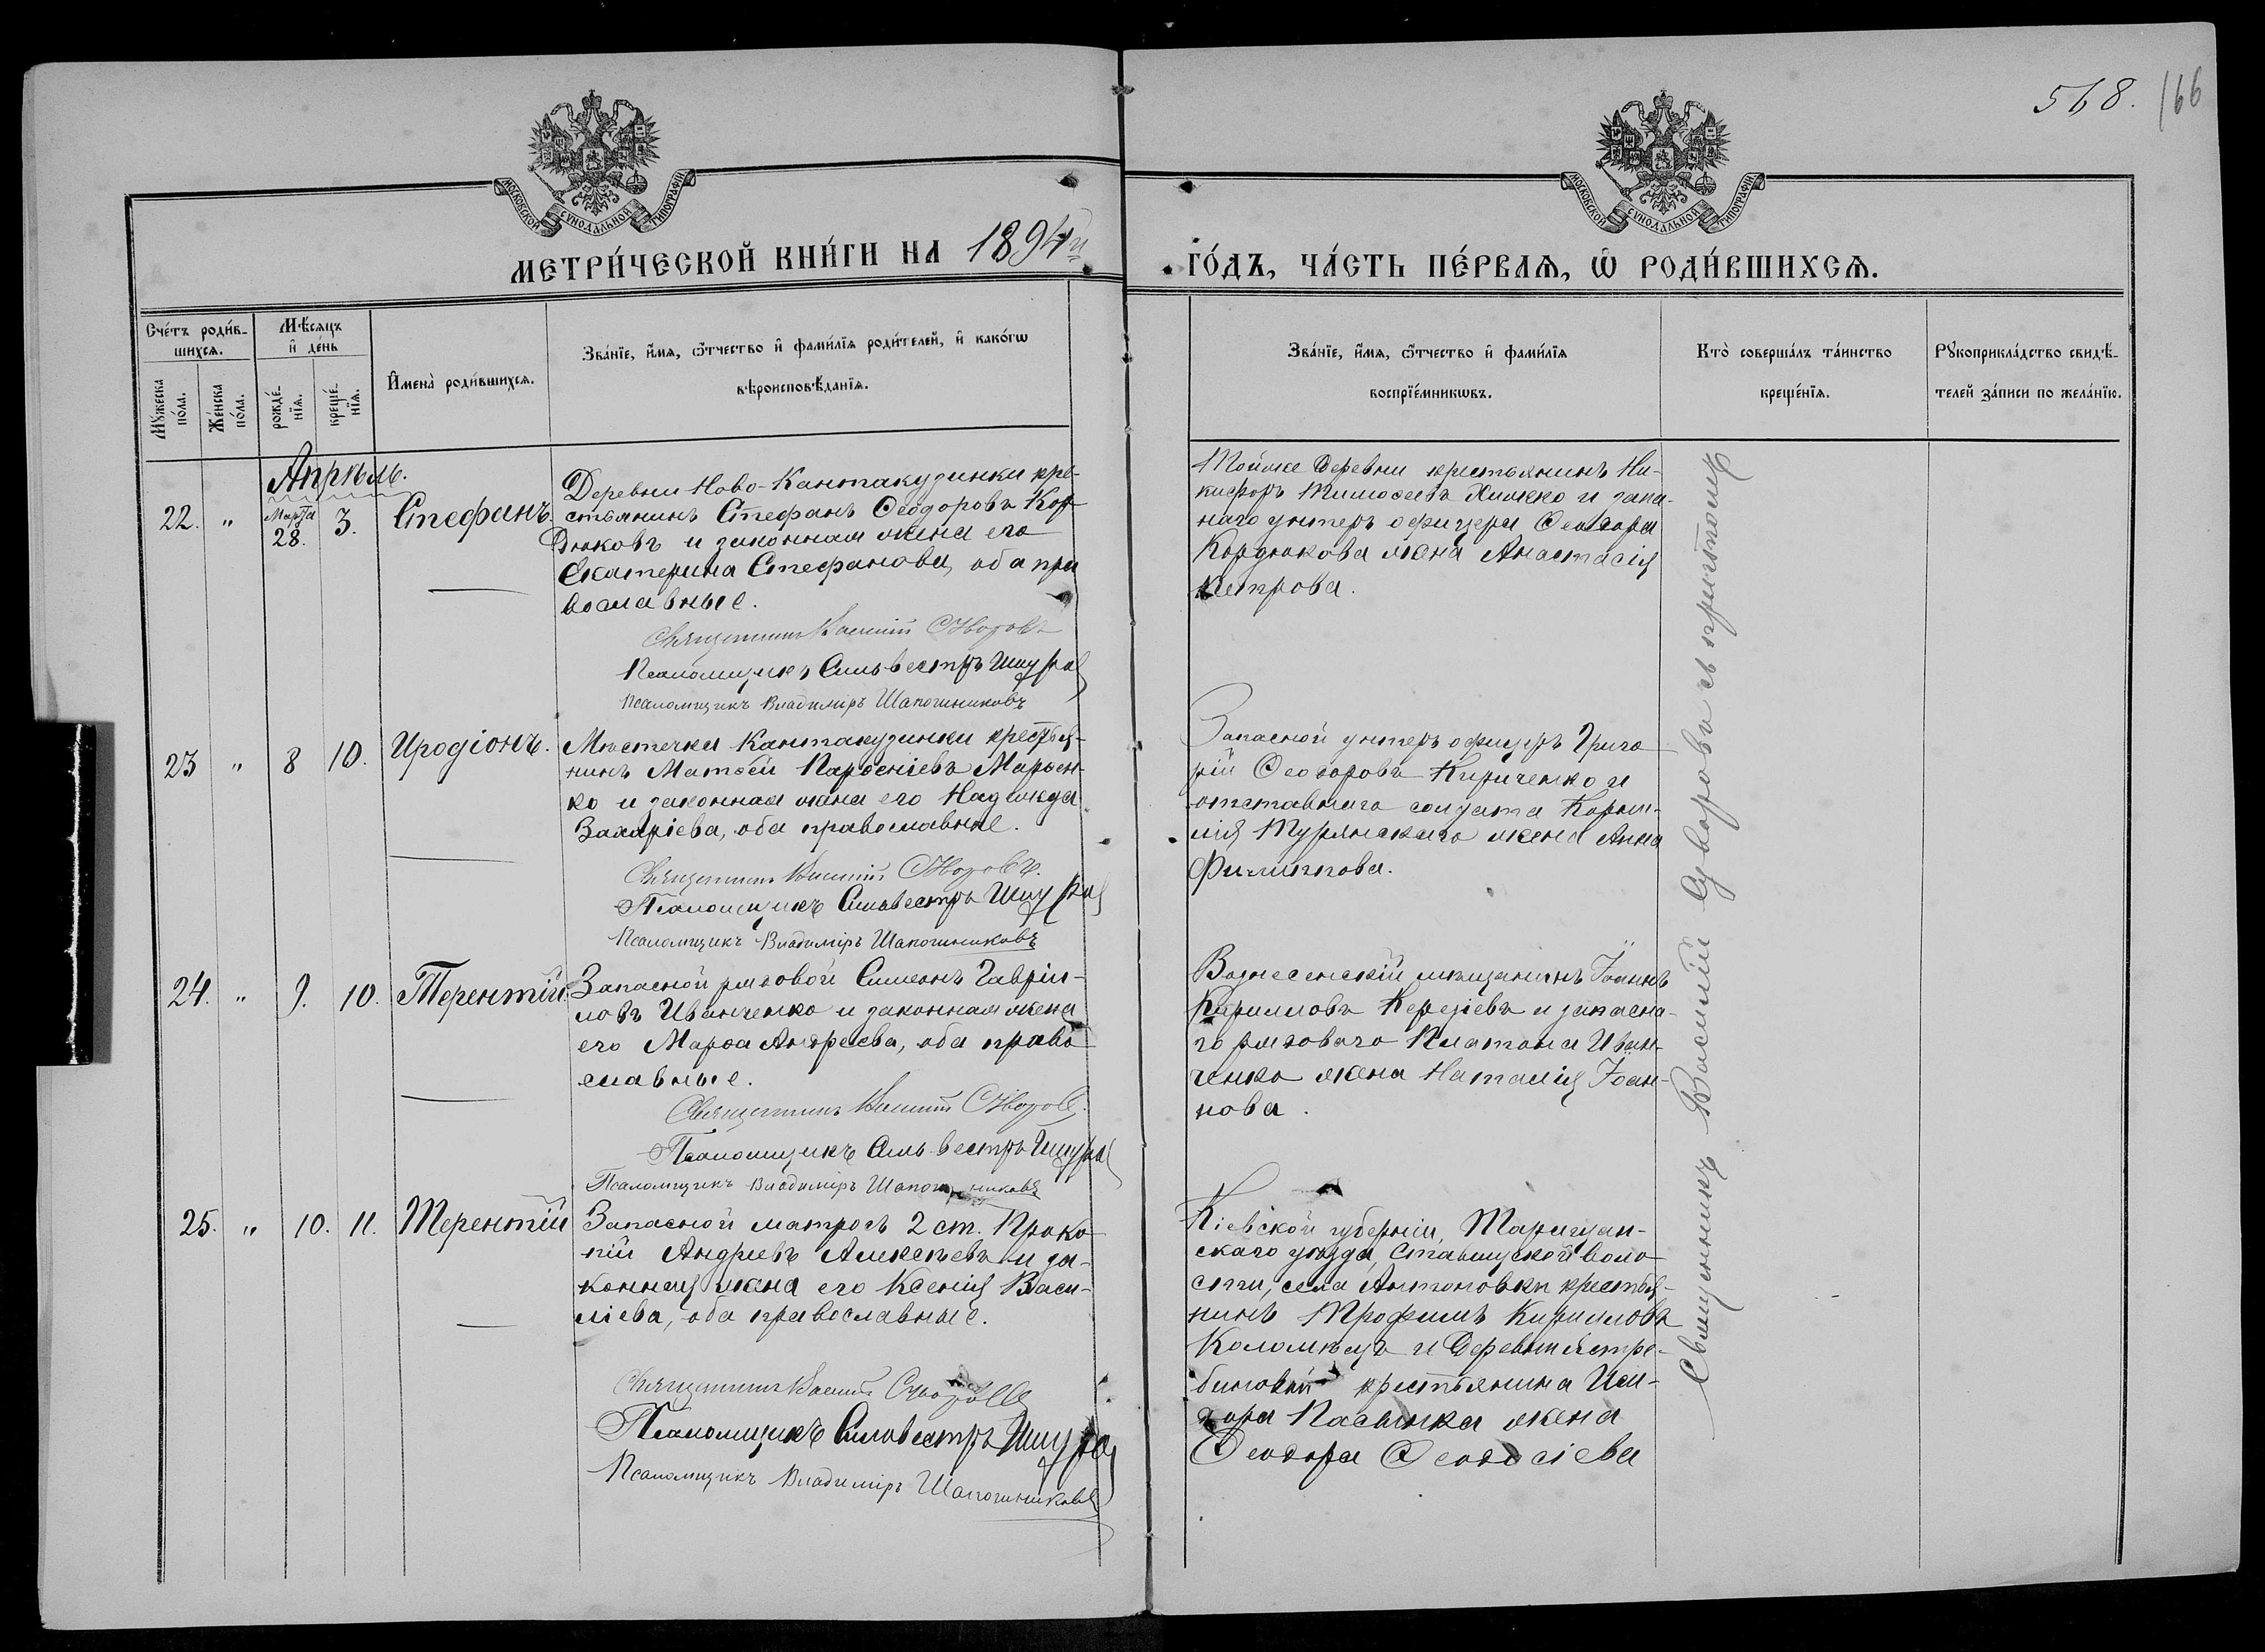 568. 166
МОСКОВСКОЙ СѴНОДАЛЬНОЙ ТИПОГРАФІИ
МОСКОВСКОЙ СѴНОДАЛЬНОЙ ТИПОГРАФІИ
МЕТРИ́ЧЕСКОЙ КНИ́ГИ НА 1894й
ГО́ДЪ, ЧА́СТЬ ПЕ́РВАѦ, Ѽ РОДИ́ВШИХСѦ.
Сче́тъ роди́в-
шихсѧ.
Мꙋ́жеска по́ла.
Же́нска по́ла.
Мѣ́сѧцъ
и҆ де́нь
рожде́-
нїѧ.
креще́-
нїѧ.
И҆мена̀ роди́вшихсѧ.
Зва́нїе, и҆́мѧ, ѻ҆́тчество и҆ фами́лїѧ роди́телей, и҆ како́гѡ
вѣроисповѣ́данїѧ.
Зва́нїе, и҆́мѧ, ѻ҆́тчество и҆ фами́лїѧ
воспрїе́мникѡвъ.
Кто̀ соверша́лъ та́инство
креще́нїѧ.
Рꙋкоприкла́дство свидѣ́-
телей за́писи по жела́нїю.
Апрѣль.
22. " Марта 28. 3. Стефанъ.
Деревни Ново-Кантакузинки кре-
стьянинъ Стефанъ Ѳеодоровъ Кор-
дюковъ и законная жена его
Екатерина Стефанова, оба пра
вославные.
Священникъ Василій Суворовъ
Псаломщикъ Сильвестръ Шмура
Псаломщикъ Владиміръ Шапошниковъ
Тойже деревни крестьянинъ Ни-
кифоръ Тимоѳеевъ Хижко и запа-
наго унтеръ офицера Ѳеодора
Кордюкова жена Анастасія
Петрова.
23 " 8 10. Иродіонъ.
Мѣстечка Кантакузинки крестья-
нинъ Матѳей Парѳеніевъ Марѳен-
ко и законная жена его Надежда
Захаріева, оба православные.
Священникъ Василій Суворовъ.
Псаломщикъ Сильвестръ Шмура
Псаломщикъ Владиміръ Шапошниковъ
Запасной унтеръ офицеръ Григо
рій Ѳеодоровъ Кириченко и
отставнаго солдата Корни-
лія Турянскаго жена Анна
Филиппова.
24. " 9. 10. Терентій.
Запасной рядовой Симеонъ Гаврии-
ловъ Иванченко и законная жена
его Марѳа Андреева, оба право
славные.
Священникъ Василій Суворовъ.
Псаломщикъ Сильвестръ Шмура
Псаломщикъ Владиміръ Шапошниковъ
Вознесенскій мѣщанинъ Іоаннъ
Кирилловъ и запасна-
го рядоваго Платона Иван-
ченка жена Наталія Іоан-
нова.
25. " 10. 11. Терентій
Запасной матросъ 2 ст. Проко
пій Андреевъ Алексѣевъ и за-
конная жена его Ксенія Васи-
ліева, оба православные.
Священникъ Василій Суворовъ
Псаломщикъ Сильвестръ Шмура
Псаломщикъ Владиміръ Шапошниковъ
Кіевской губерніи, Таращан-
скаго уѣзда, Ставищской воло
сти, села Антоновки крестья-
нинъ Трофимъ Кирилловъ
Коломѣецъ и деревни Ястре-
биновки крестьянина Иси-
дора Пасынка жена
Ѳеодора Ѳеодосіева
Священникъ Василій Суворовъ съ причтомъ